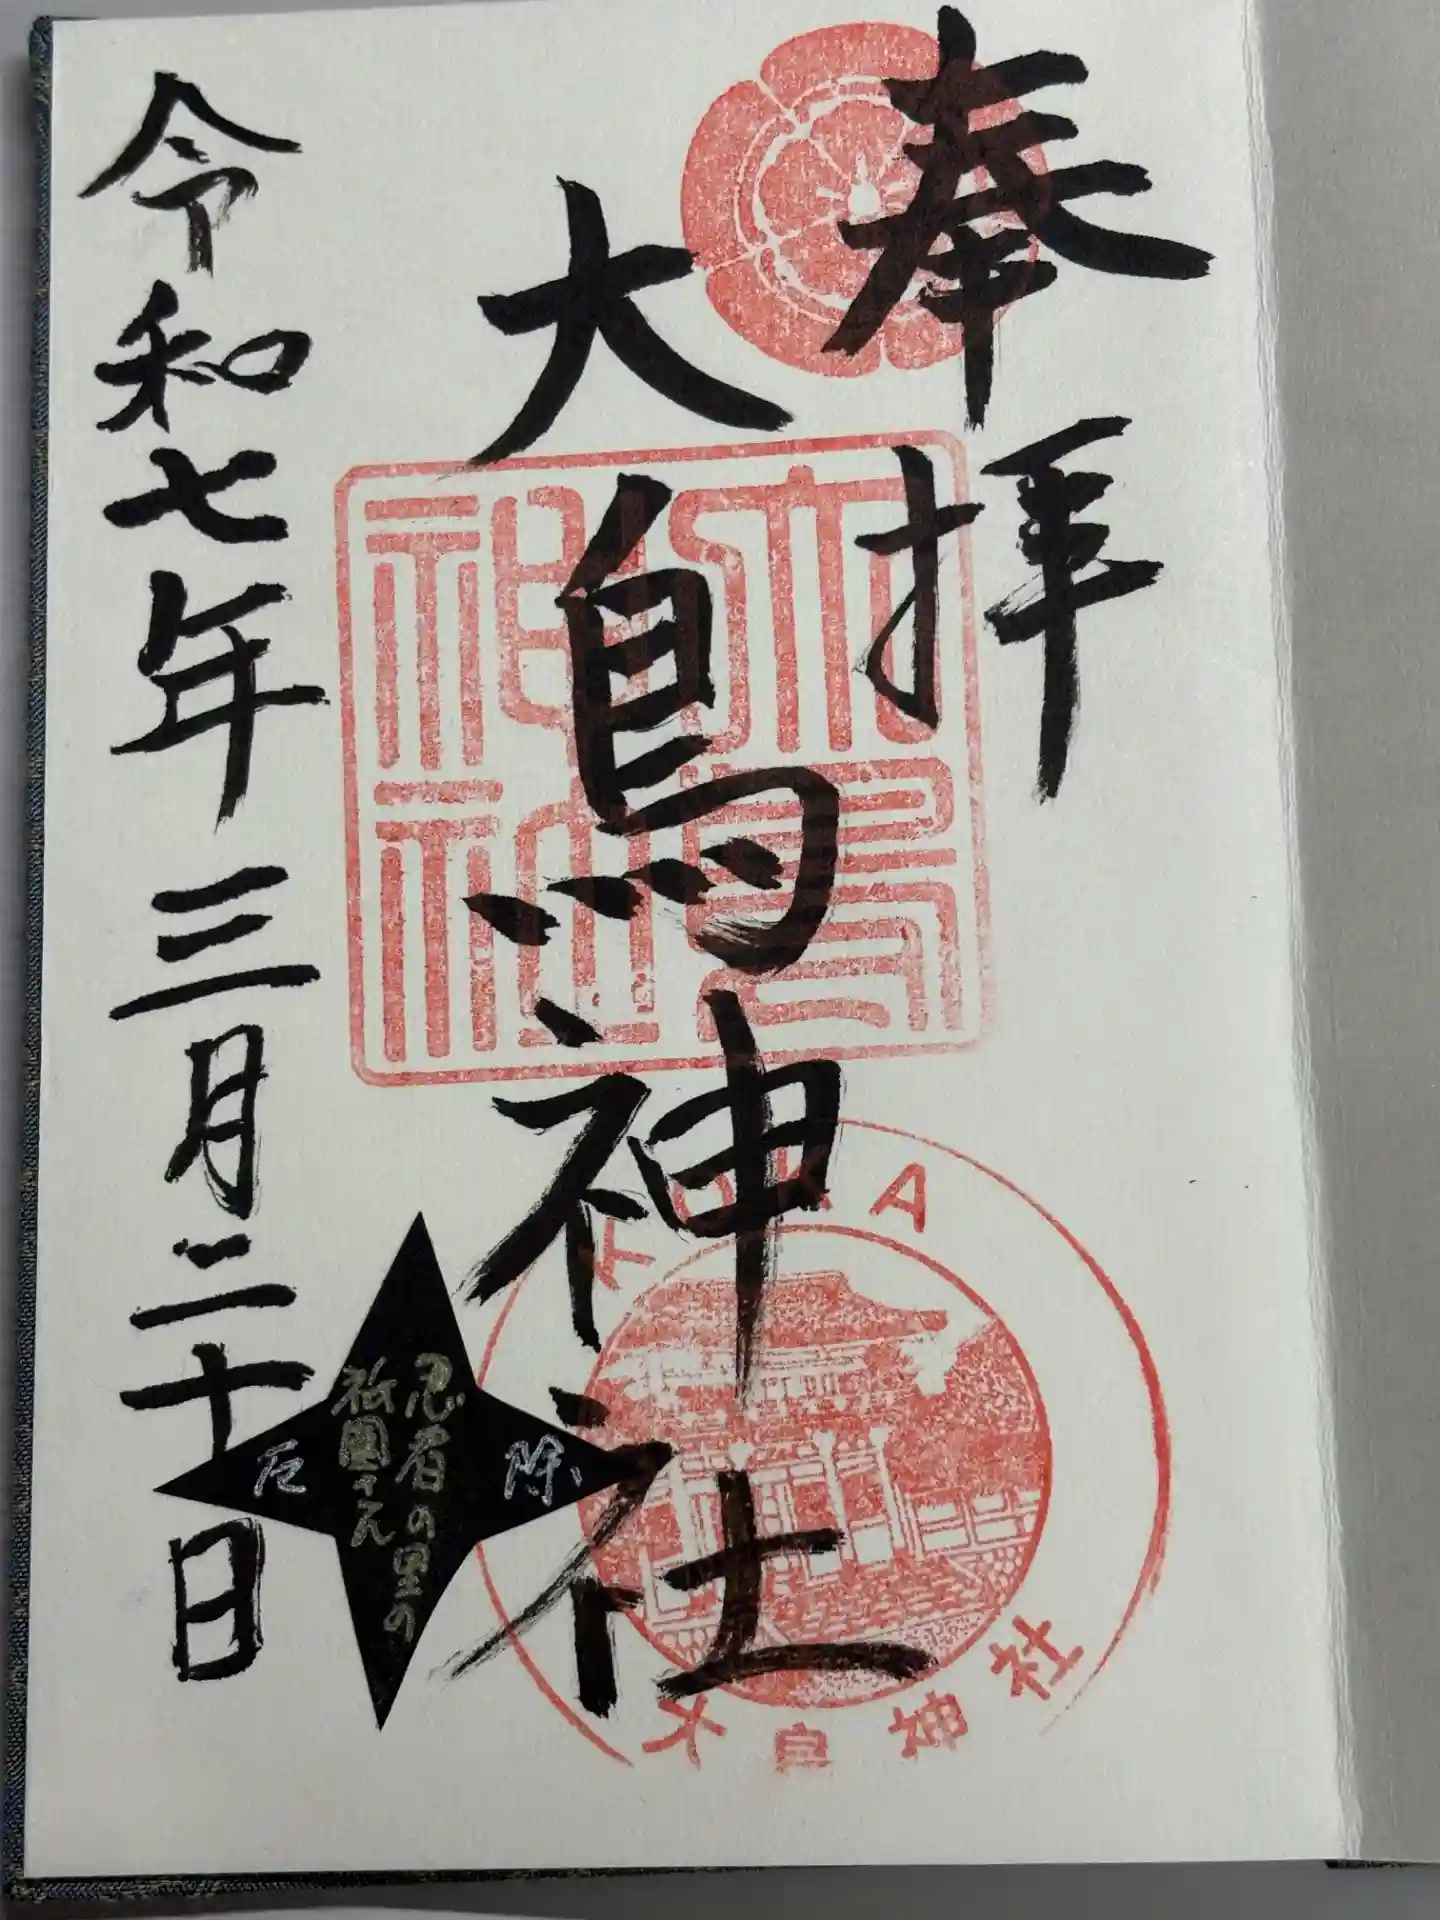 奉拝
大鳥神社
令和七年三月二十日
忍者の里の
祇園さん
厄除
KOKA
大鳥神社